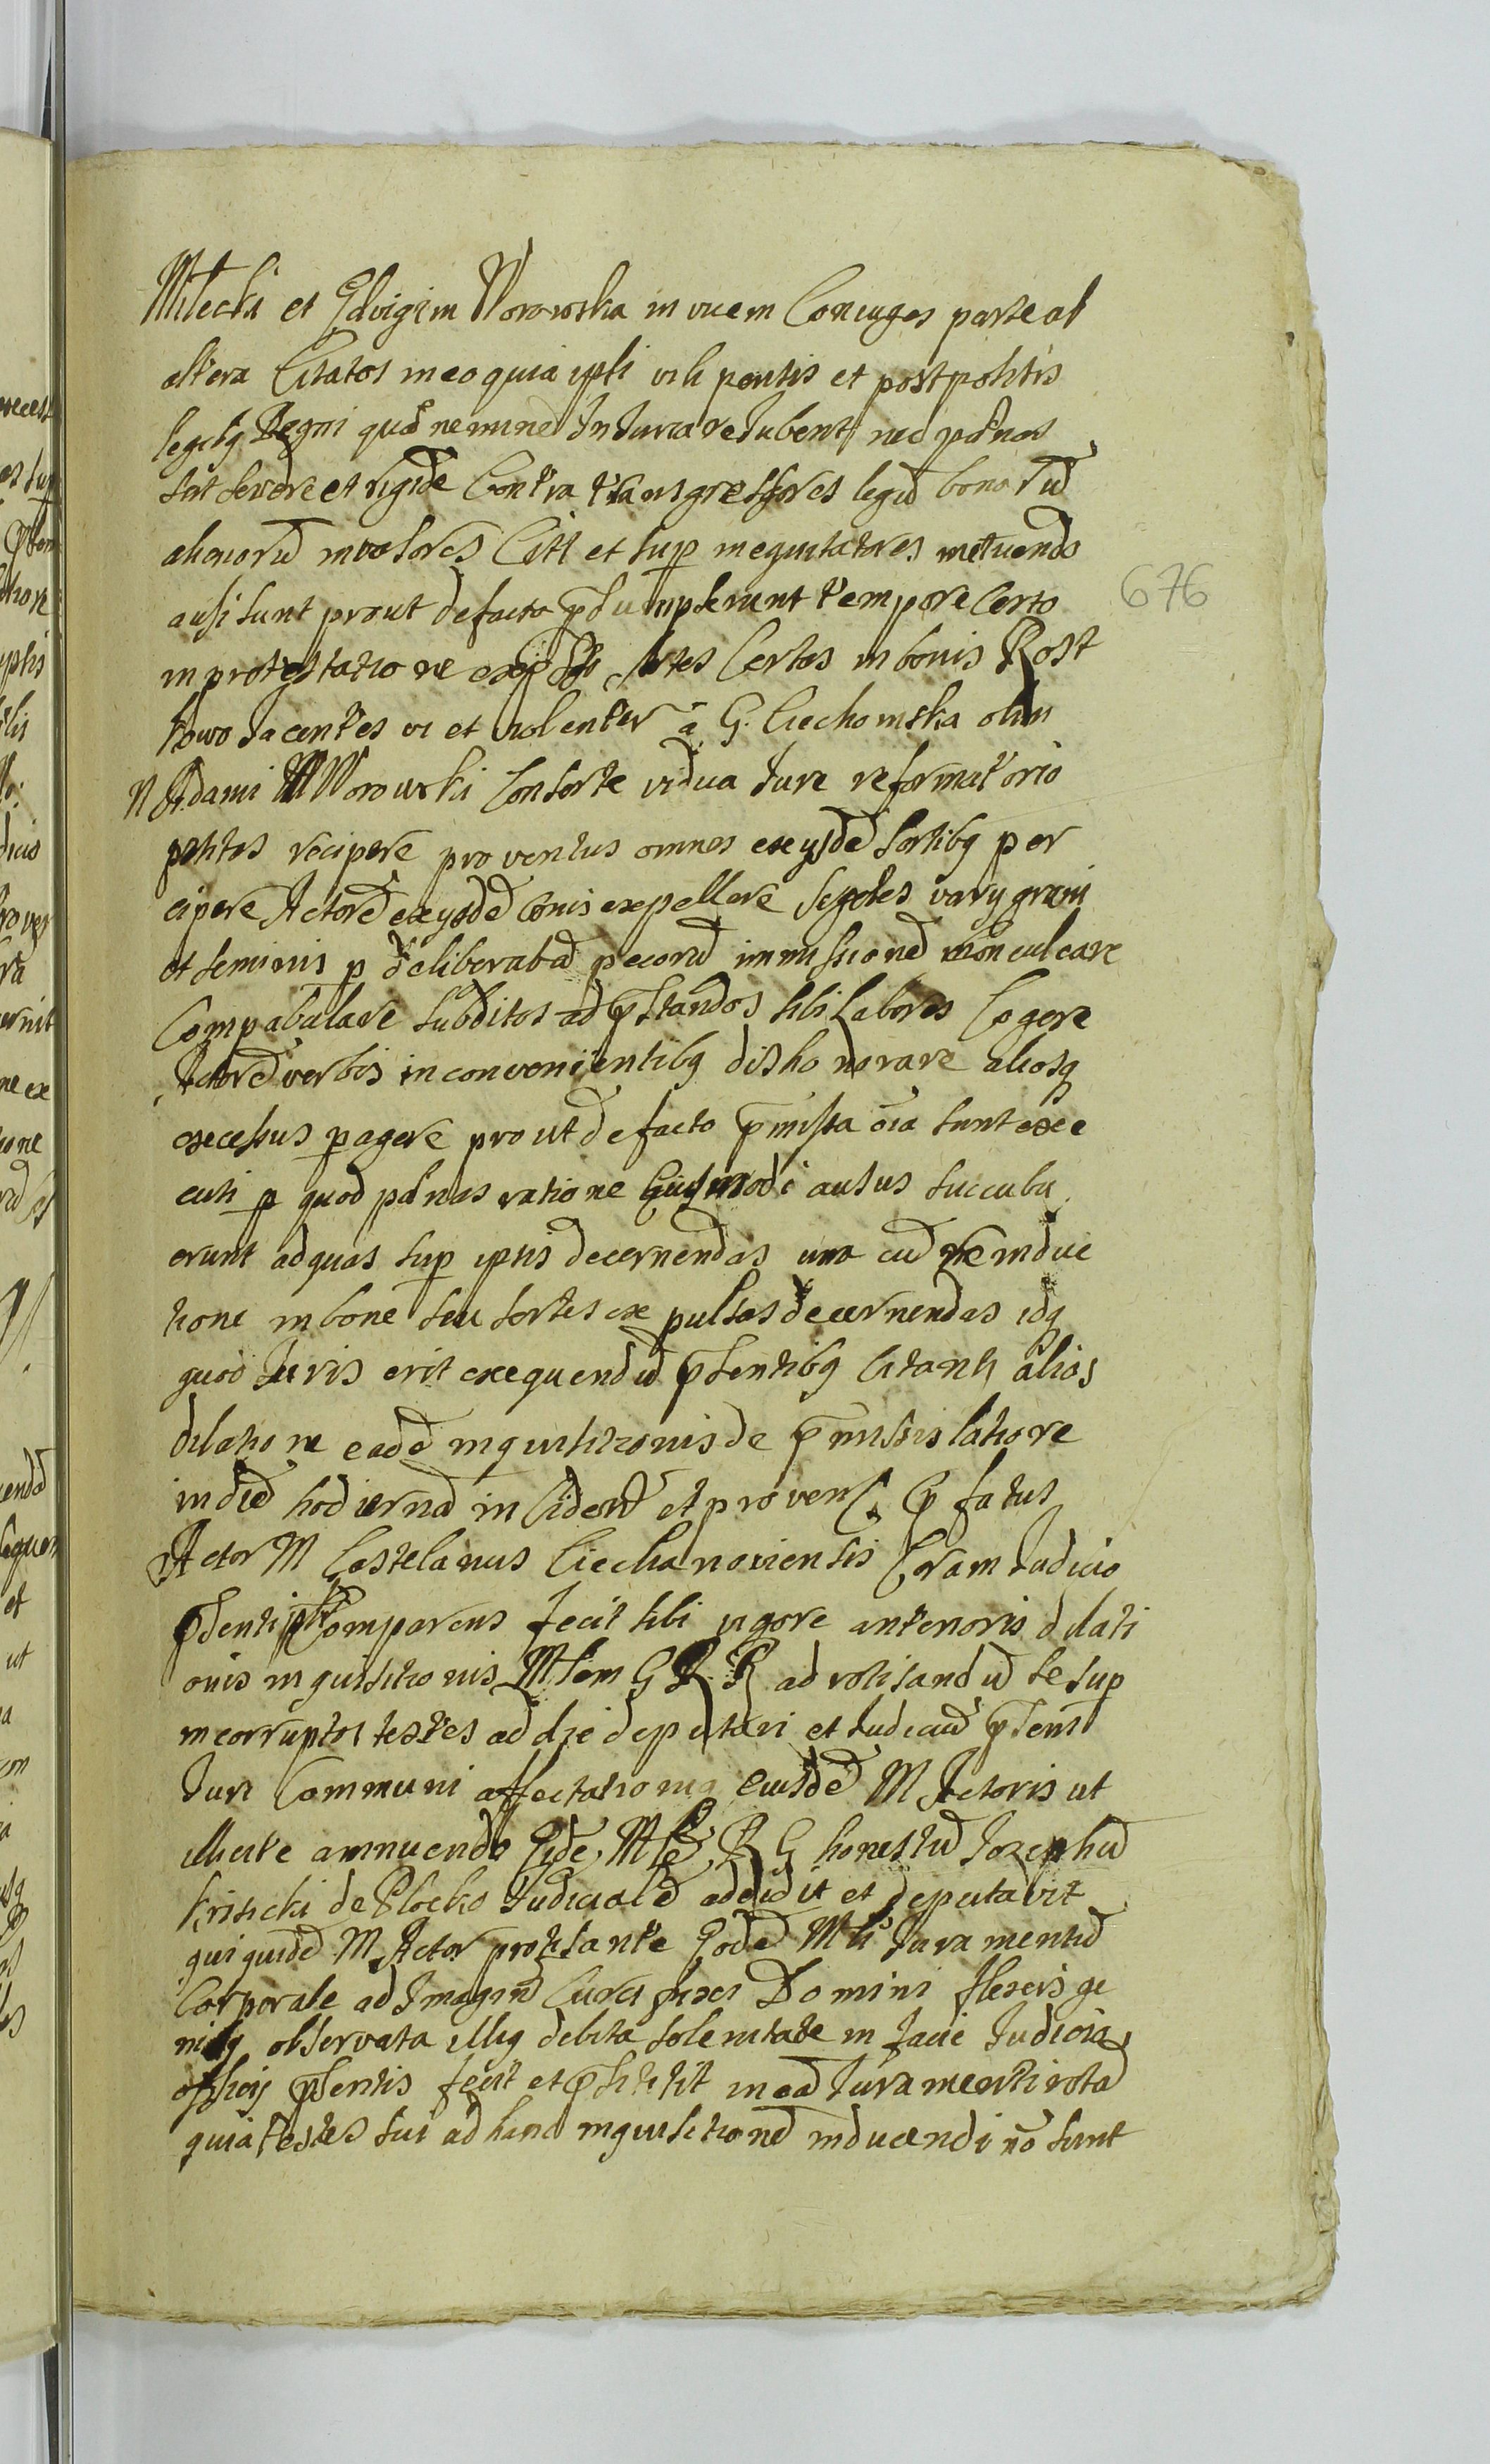 Milecki et Edvigim Worowska in vicem Coniuges parte ab
altera Citatos in eo quia ipsi vili pensis et post positis
legibq Regni quæ neminē Iniuriare Iubent nec pænas
sat severe et rigide Contra transgressores legū bonorū
alienorū invasores Citt et sup inequitatores metuendo
ausi sunt prout de facto p̄sumpserunt tempore Certo
in protestatione Sortes Certas in bonis Rost
kowo Iacentes vi et violenter a G. Ciechomska olim
N Adami Worowski Consorte vidua Iure reformatorio
petitas recipere proventus omnes ex ijsdē Sortibq per
cipere Actorē ex ijsdē bonis expellere Segetes varij grani
et seminis p deliberatā pecorū immissionē conculcare
Compabulare Subditos ad p̄standos sibi Labores Cogere
Actorē verbis inconvenientibq dishonorare aliosq
excessus pagere prout de facto p̄missa oīa sunt exe
cuti p quod pænas ratione Eiusmodi ausus succubu
erunt ad quas sup ipsis decernendas una cū reinduc
tione in bona seu sortes ex pulsas decernendas idq
quod Iuris erit exequendū p̄sentibq Citanti alias
dilatione eadē inquisitionis de p̄missis latiore
in diē hodiernā inCiden et proven p̄fatus
Actor M Castelanus Ciechanoviensis Coram Iudicio
p̄senti Comparens fecit sibi vigore anterioris dilati
onis inquisitionis Mlem G R ad rotisandū se sup
incorruptos testes addi deputari et Iudiciū p̄sens
Iuri Communi affectationiq Eiusdē M Actoris ut
illicite annuendo Eidē M R G honestū Iozephū
Krisicki de Plocko Iudicialē addidit et deputavit
qui quidē M Actor protisante Eodē Mli Iuramentū
Corporale ad Imaginē Crucifixi Domini flexis ge
nibq observata illiq debita solenitate in facie Iudicij
officij p̄sentis fecit et p̄stitit in eā Iuramenti rotā
quia testes sui ad hanc inquisitionē inducendi nō sunt
676